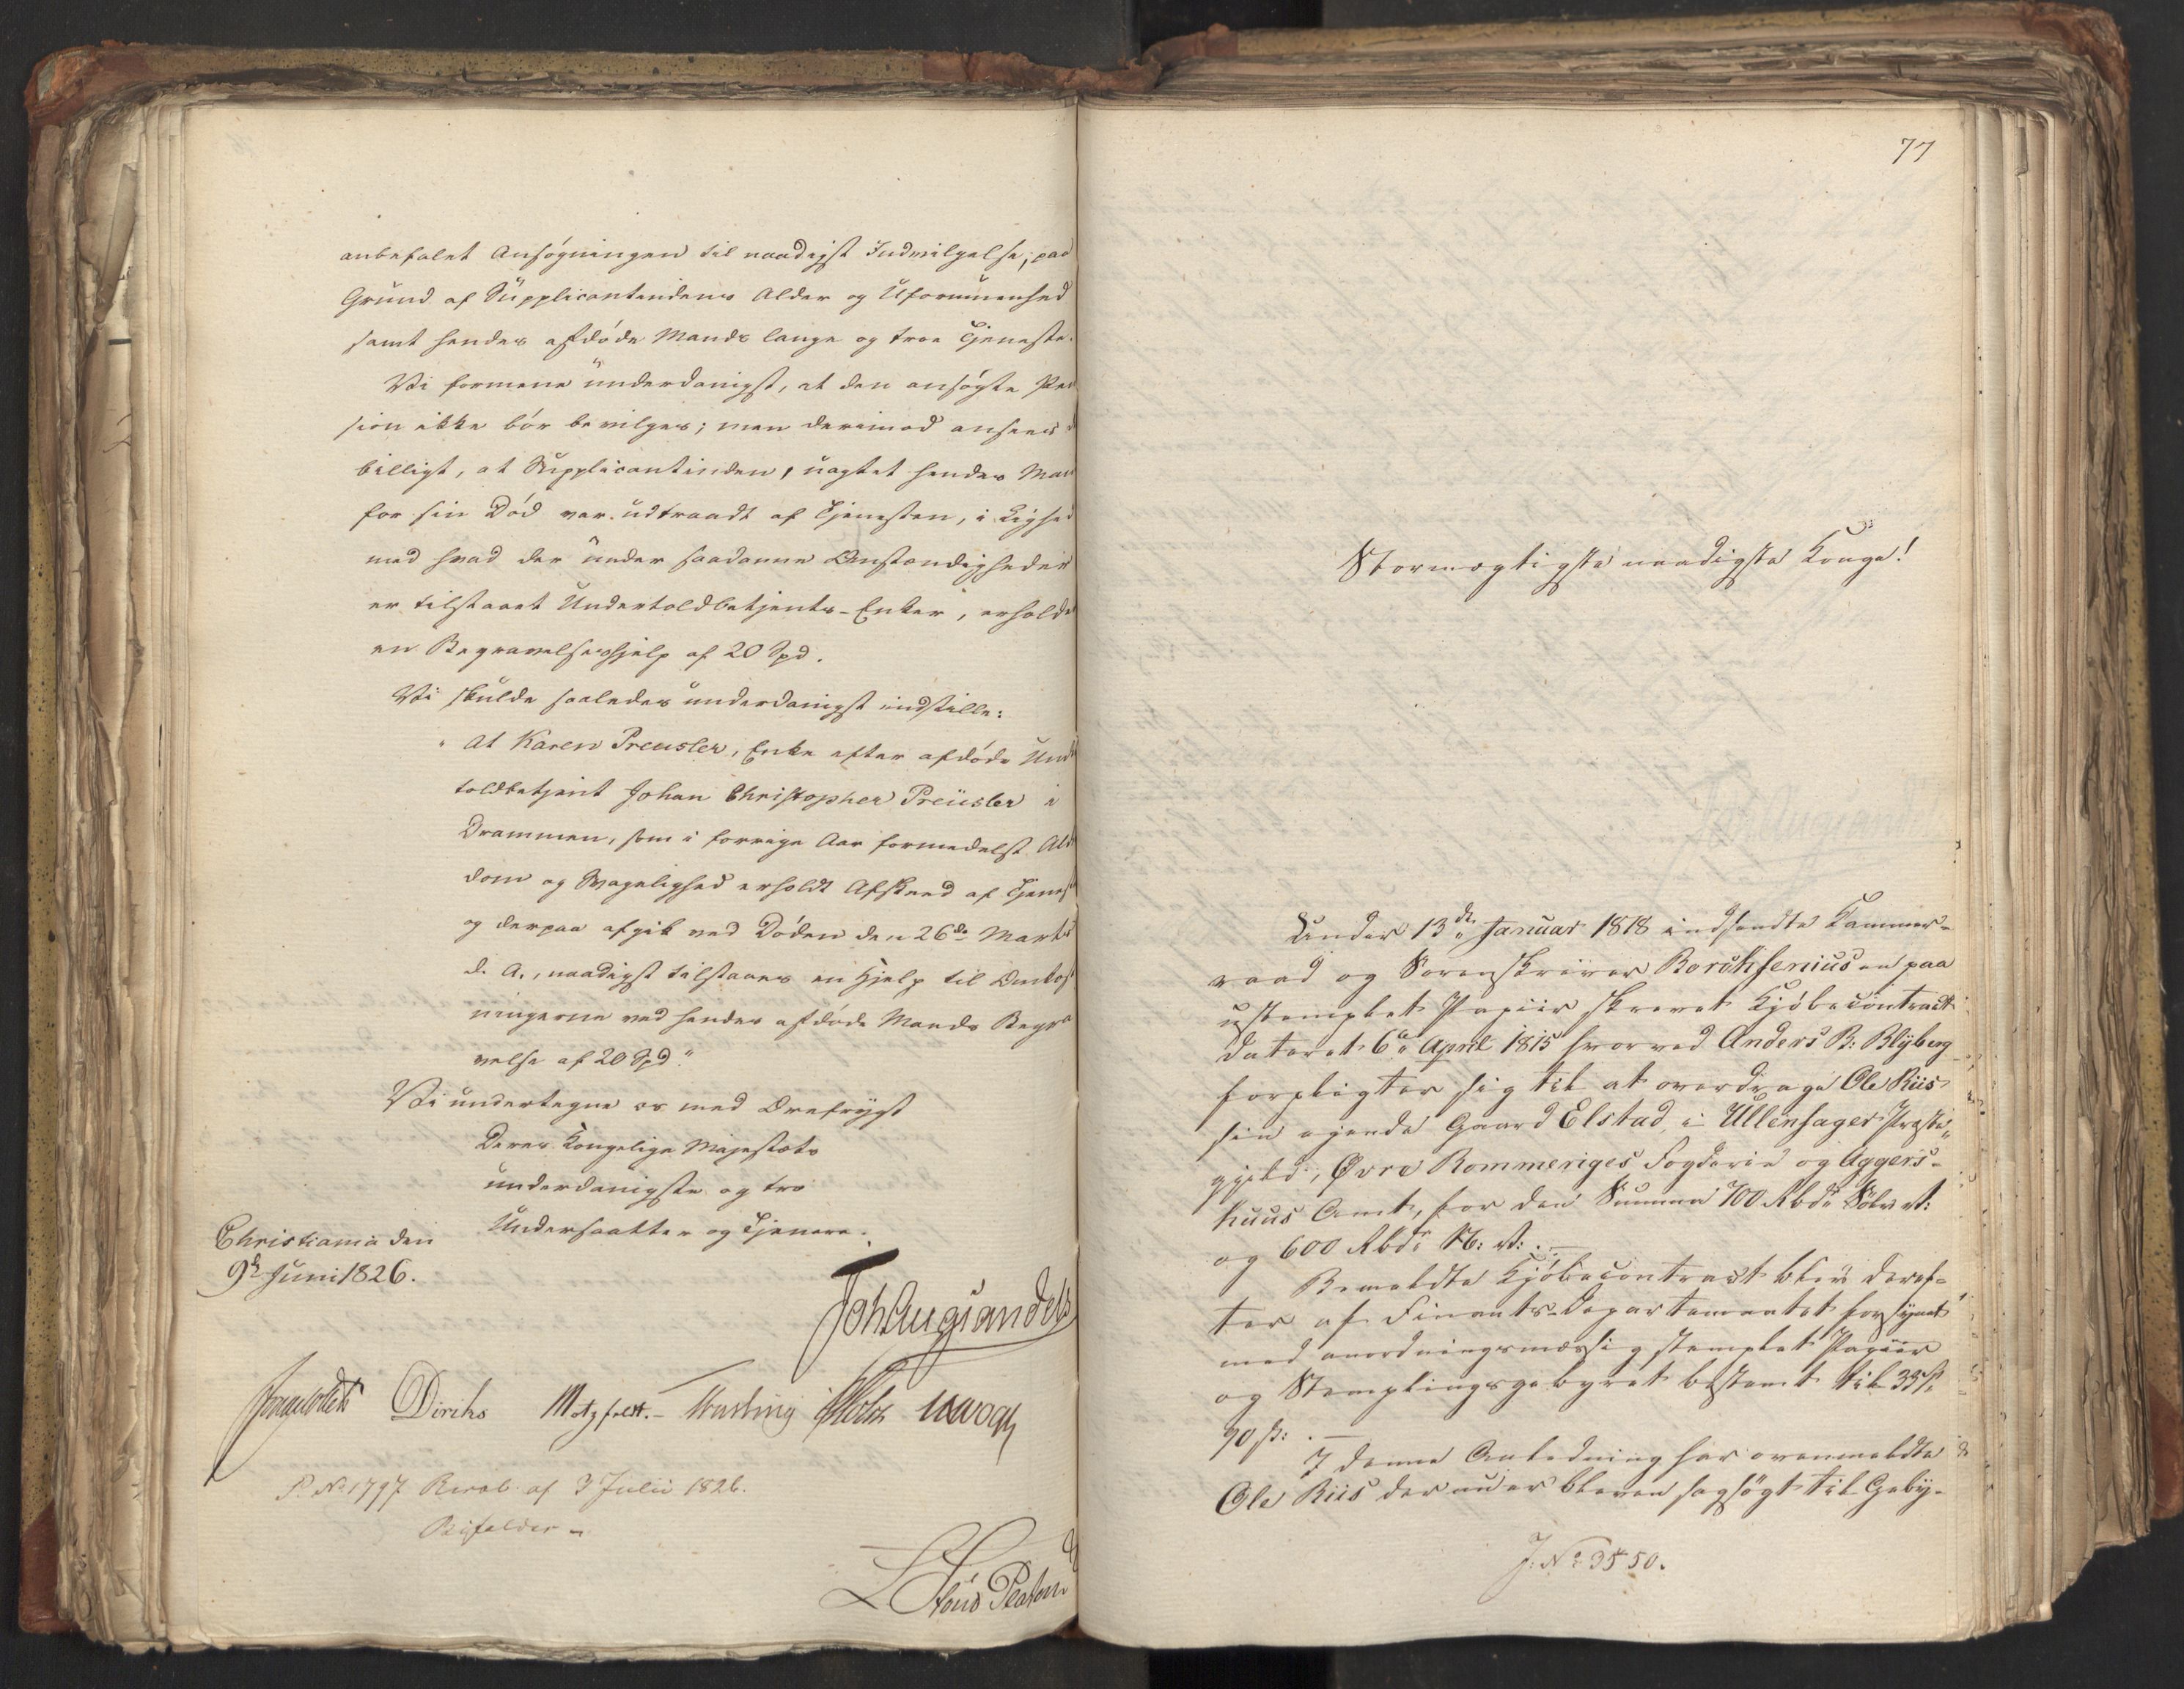 anbefalet Ansøgningen til naadigst Indvilgelse, paa
Grund af Supplicantindens Alder og Uformuenhed
samt hendes afdøde Mands lange og troe Tjeneste.
Vi formene underdanigst, at den ansøgte Pen
sion ikke bør bevilges; men derimod ansees d
billigt, at Supplicantinden, uagtet hendes Man
før sin Død var udtraadt af Tjenesten, i Lighed
med hvad der under saadanne Omstændigheder
er tilstaaet Undertoldbetjents-Enker, erholder
en Begravelseshjelp af 20 Spd.
Vi skulde saaledes underdanigst indstille:
"At Karen Preusler, Enke efter afdøde Under
toldbetjent Johan Christopher Preusler i
Drammen, som i forrige Aar formedelst Alder
dom og Svagelighed erholdt Afskeed af Tjenest
og derpaa afgik ved Døden den 26de Martii
d. A., naadigst tilstaaes en Hjelp til Omkost
ningerne ved hendes afdøde Mands Begra
velse af 20 Spd."
Vi undertegne os med Ærefrygt
Deres Kongelige Majestæts
underdanigste og tro
Undersaatter og Tjenere.
Christiania den
9de Juni 1826.
Joh Aug Sandels
Jonas Collett Diriks Motzfeldt. Krebs
P. No 1797 Resol. af 3 Julii 1826.
Bifaldes
77
Stormægtigste naadigste Konge!
Under 13de Januar 1818 indsendte Kammer-
raad og Sorenskriver Borchsenius en paa
ustemplet Papiir skrevet Kjøbecontract
dateret 6te April 1815 hvorved Anders B: Blyberg
forpligter sig til at overdrage Ole Riis
sin ejende Gaard Elstad, i Ullensager Præste-
gjeld, Øvre Rommeriges Fogderie og Aggers-
huus Amt, for den Summa 700 Rbdr Sølv V:
og 600 Rbdr N: V: . —
Bemeldte Kjøbecontract blev deref-
ter af Finants-Departementet forsynet
med anordningsmæssig stemplet Papiir
og Stemplingsgebyret bestemt til 33 Sp.
90 ß: . —
I denne Anledning har ovenmeldte
Ole Riis der nu er bleven sagsøgt til Geby-
J: No 3550.